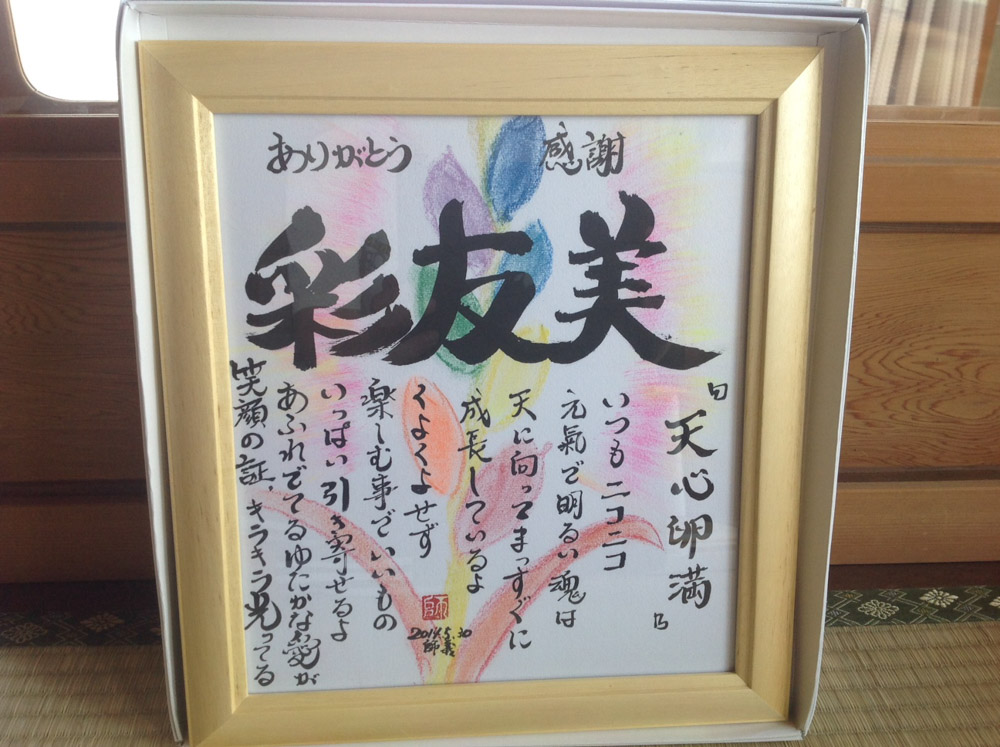 ありがとう
感謝
彩友美
「天心卯満」
いつもニコニコ
元氣で明るい魂は
天に向ってまっすぐに
成長しているよ
くよくよせず
楽しむ事でいいもの
いっぱい引き寄せるよ
あふれでてるゆたかな愛が
笑顔の証 キラキラ光ってる
師
2014.5.30
師義